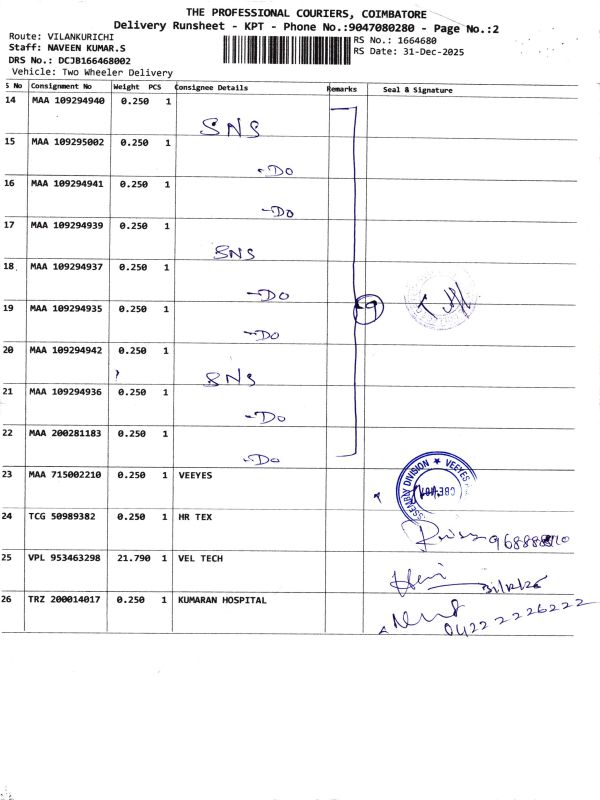 THE PROFESSIONAL COURIERS, COIMBATORE
Delivery Runsheet - KPT - Phone No.:9047080280 - Page No.:2
Route: VILANKURICHI
RS No.: 1664680
Staff: NAVEEN KUMAR.S
RS Date: 31-Dec-2025
DRS No.: DCJB166468002
Vehicle: Two Wheeler Delivery
S No Consignment No Weight PCS Consignee Details Remarks Seal & Signature
14 MAA 109294940 0.250 1
SNS
15 MAA 109295002 0.250 1
-Do
16 MAA 109294941 0.250 1
-Do
17 MAA 109294939 0.250 1
SNS
18 MAA 109294937 0.250 1
-Do
19 MAA 109294935 0.250 1
-Do
20 MAA 109294942 0.250 1
SNS
21 MAA 109294936 0.250 1
-Do
22 MAA 200281183 0.250 1
-Do
23 MAA 715002210 0.250 1 VEEYES
ASSEMBLY DIVISION ★ VEEYES
24 TCG 50989382 0.250 1 HR TEX
25 VPL 953463298 21.790 1 VEL TECH
31/12/25
26 TRZ 200014017 0.250 1 KUMARAN HOSPITAL
0422 2226222